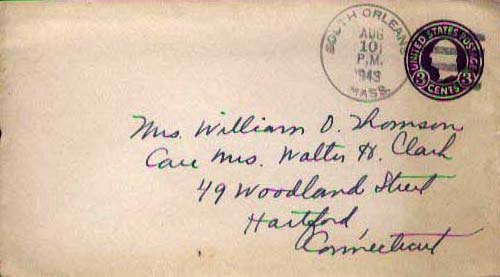 SOUTH ORLEANS
AUG
10
P.M.
1943
MASS.
UNITED STATES POSTAGE
3 CENTS 3
Mrs. William O. Thomson
Care Mrs. Walter H. Clark
49 Woodland Street
Hartford,
Connecticut